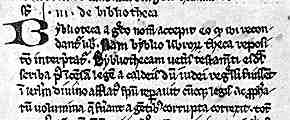 iii de bibliotheca
Biblioteca a greco nom̄ accepit eo qͥ ibi recon
dant͛ libri. Nam biblio libroꝝ theca reposi
tō interpretat͛. Bibliothecam uet̄is testam̄ti esd
scriba p̄ incensā legē a caldeis dum iudei regressi fuissēt
in ierlm diuino afflat᷒ spū reparauit cunctaqȝ legis ac ꝓpha
tarū volumina q̄ fuerāt a gētibȝ corrupta correxit. tot